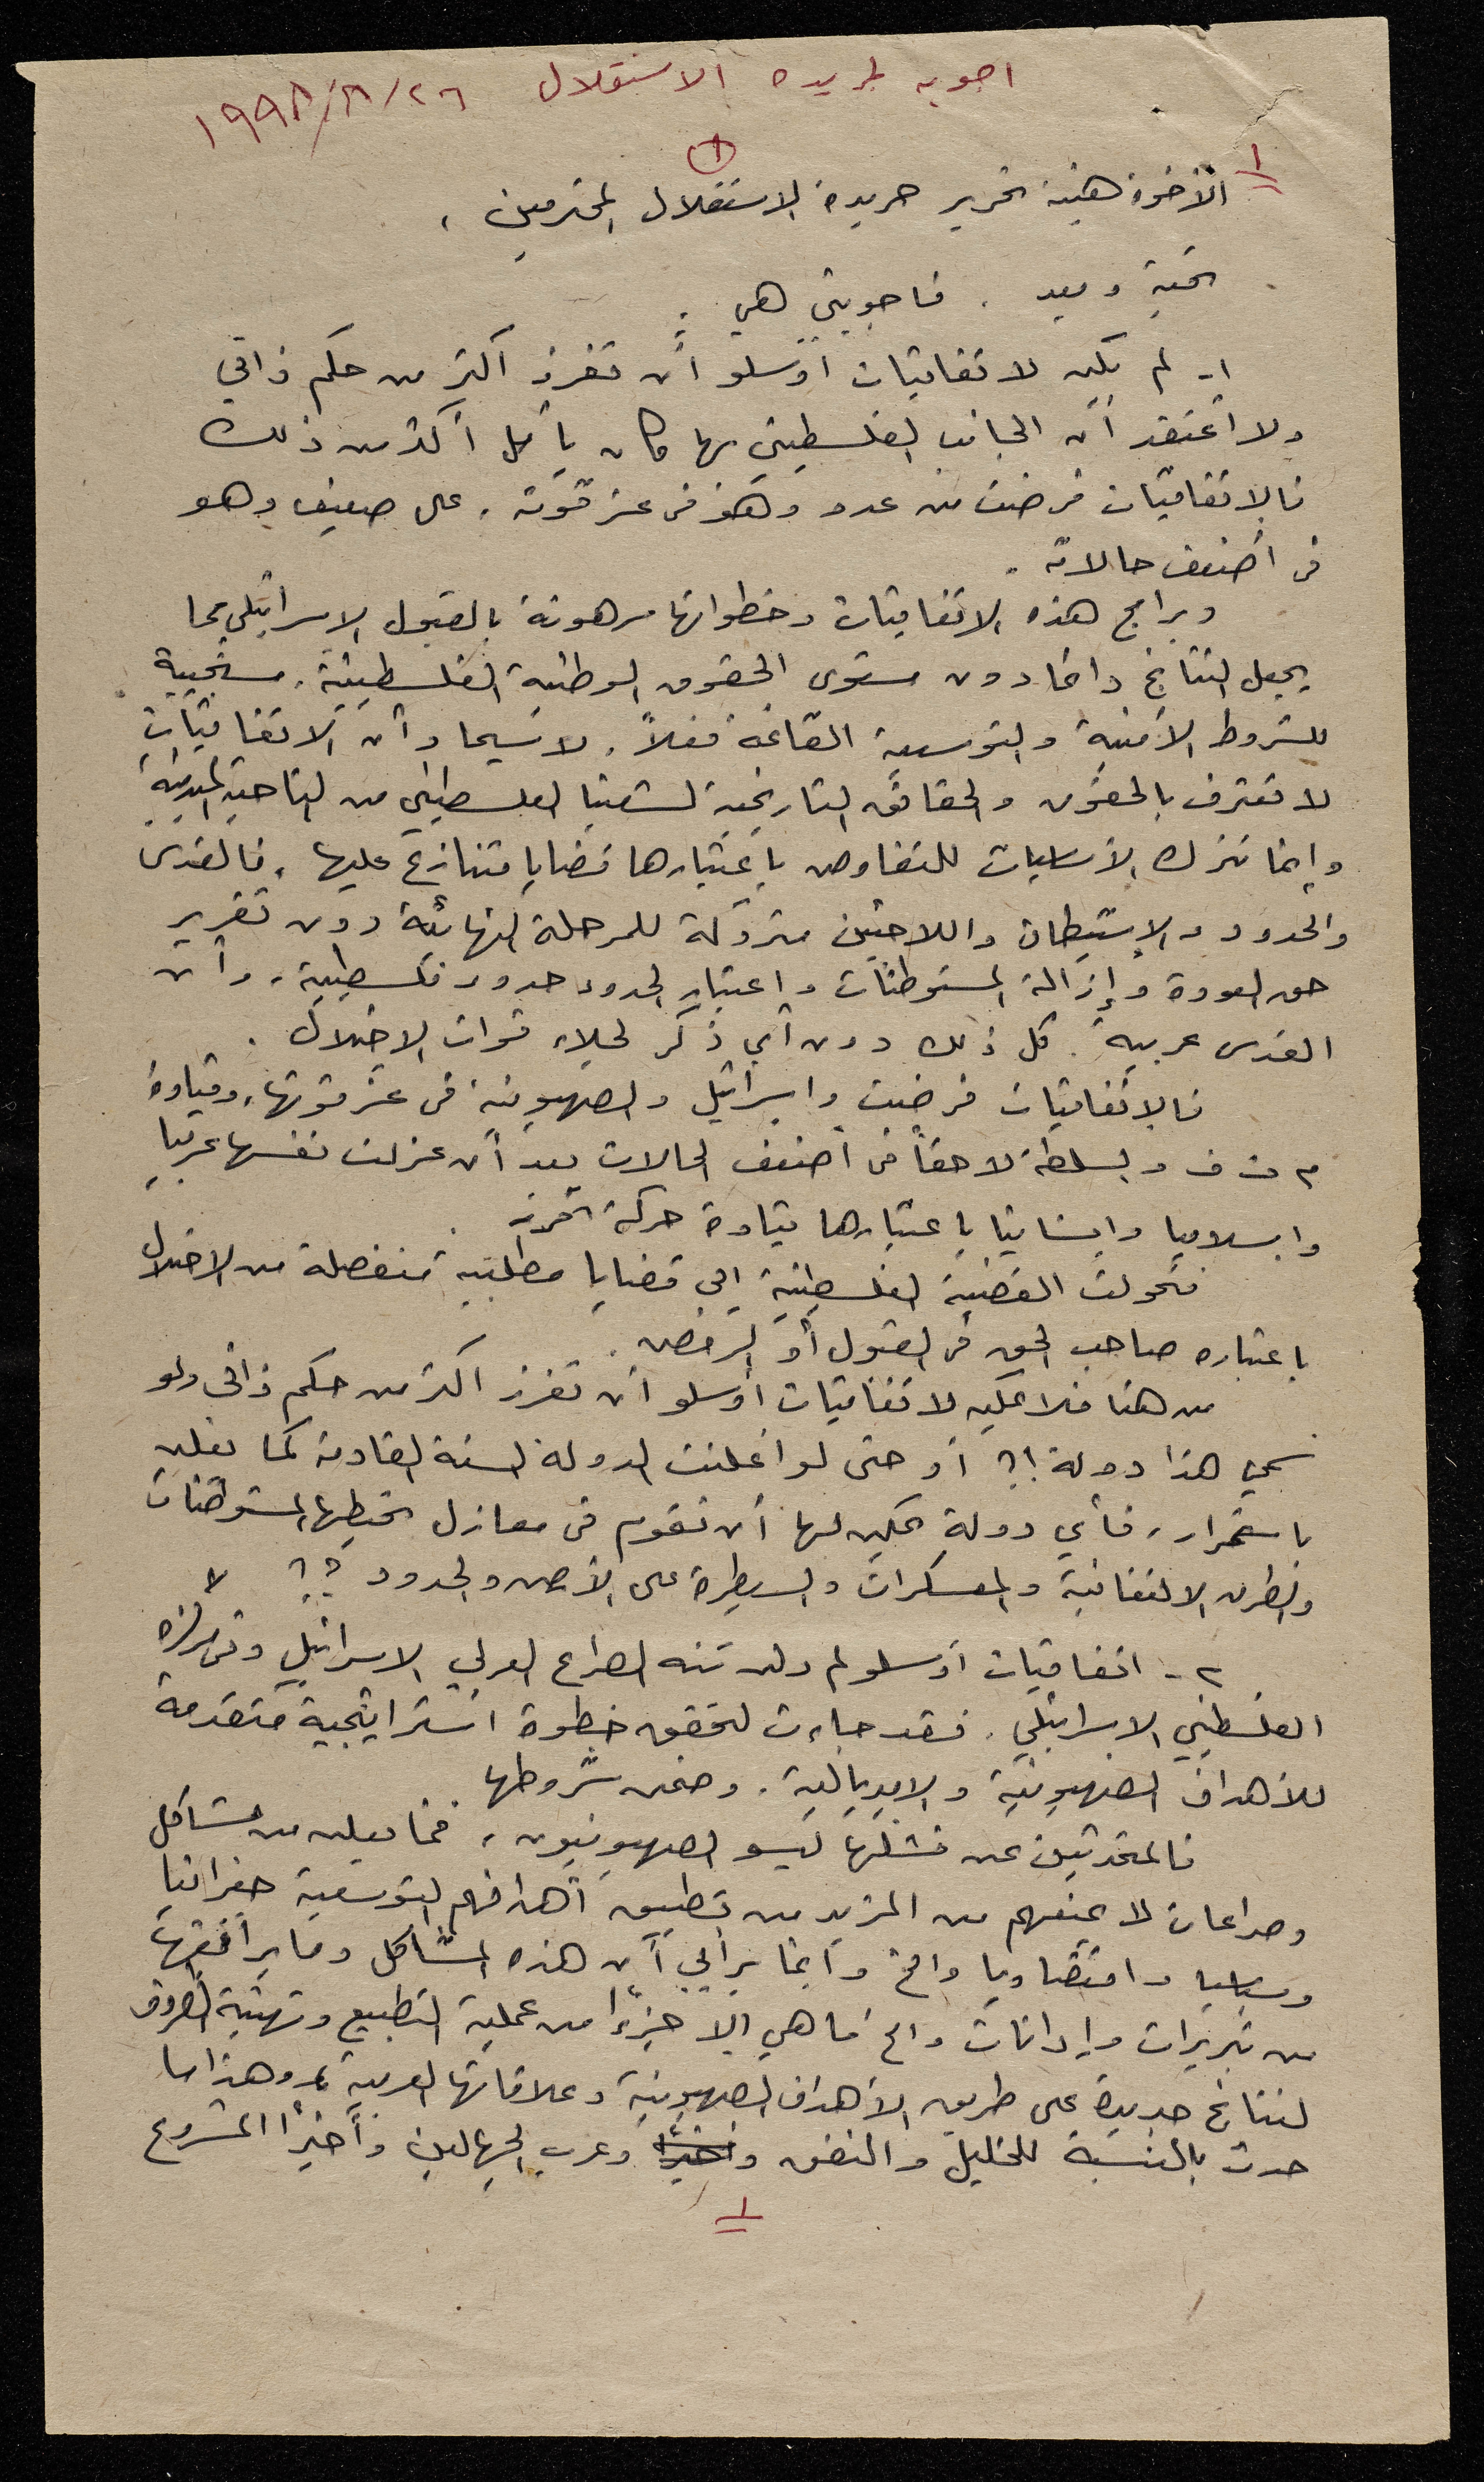 اجوبه لجريده الاستقلال ٢٦/٨/١٩٩٨
١
١
الأخوة هيئة تحرير جريدة الاستقلال المحترمين ،
تحية وبعد . فاجوبتي هي :
١- لم يكن لاتفاقيات أوسلو أن تفرز أكثر من حكم ذاتي
ولا أعتقد أن الجانب الفلسطيني بها كان يأمل أكثر من ذلك
فالاتفاقيات فرضت من عدو وهو في عز قوته ، على ضعيف وهو
في أضعف حالاته .
وبرامج هذه الاتفاقيات وخطواتها مرهونة بالقبول الاسرائيلي مما
يجعل النتائج دائما دون مستوى الحقوق الوطنية الفلسطينية ، مستجيبة
للشروط الأمنية والتوسعية القائمة فعلاً ، لا سيما وأن الاتفاقيات
لا تعترف بالحقوق والحقائق التاريخية لشعبنا الفلسطيني من الناحية المبدئية
وإنما تترك الأساسيات للتفاوض باعتبارها قضايا متنازع عليها ، فالقدس
والحدود والاستيطان واللاجئين متروكة للمرحلة النهائية دون تقرير
حق العودة وإزالة المستوطنات واعتبار الحدود حدود فلسطينية ، وأن
القدس عربية . كل ذلك دون أي ذكر لجلاء قوات الاحتلال .
فالاتفاقيات فرضت واسرائيل والصهيونية في عز قوتها ، وقيادة
م ت ف والسلطة لاحقاً في أضعف الحالات بعد أن عزلت نفسها عربيا
واسلاميا وانسانيا باعتبارها قيادة حركة تحرر .
فتحولت القضية الفلسطينية إلى قضايا مطلبية منفصلة من الاحتلال
باعتباره صاحب الحق في القبول أو الرفض .
من هنا فلا يمكن لاتفاقيات أوسلو أن تفرز اكثر من حكم ذاتي ولو
سمي هذا دولة !؟ أو حتى لو أعلنت الدولة السنة القادمة كما يعلن
باستمرار ، فأي دولة يمكن لها أن تقوم في معازل تحيطها المستوطنات
والطرق الالتفافية والمعسكرات والسيطرة على الأرض والحدود ؟؟
٢- اتفاقيات أوسلو لم ولن تنه الصراع العربي الاسرائيلي وفي
الفلسطيني الاسرائيلي . فقد جاءت لتحقق خطوة استراتيجية متقدمة
للأهداف الصهيونية والامبريالية ، وضمن شروطها
فالمتحدثين عن فشلها ليسو الصهيونيون ، فما يعلن من مشاكل
وصراعات لا يمنعهم من المزيد من تطبيق أهدافهم التوسعية جغرافيا
وسياسيا واقتصاديا والخ وانما برأيي أن هذه المشاكل وما يرافقها
من تبريرات وإدانات والخ ما هي إلا جزءاً من عملية التطبيع وتهيئة الظروف
لنتائج جديدة على طريق الأهداف الصهيونية وعلاقاتها العربية ، وهذا ما
حدث بالنسبة للخليل والنفق وعرب الجهالين وأخيراً المشروع
١